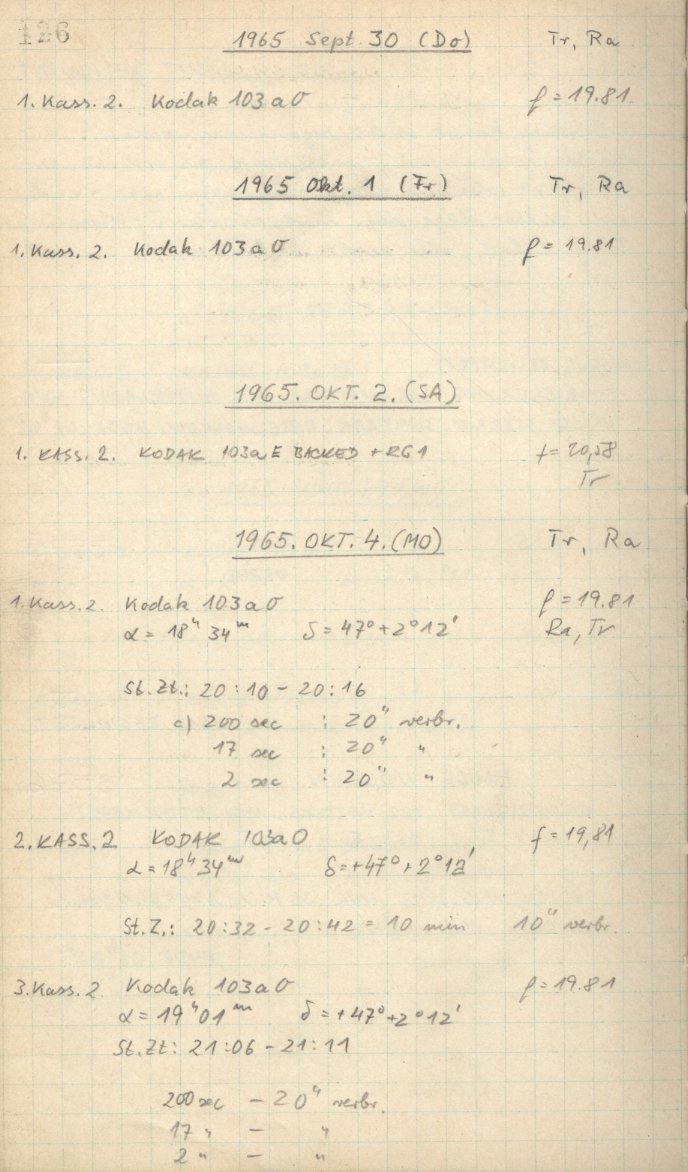 126
1965 Sept. 30 (Do) Tr, Ra
1. Kass. 2. Kodak 103aO f = 19.81
1965 Okt. 1 (Fr) Tr, Ra
1. Kass. 2. Kodak 103aO f = 19.81
1965. OKT. 2. (SA)
1. KASS. 2. KODAK 103aE BACKED + RG1 f = 20,58
Tr
1965. OKT. 4. (MO) Tr, Ra
1. Kass. 2 Kodak 103aO f = 19.81
α = 18ʰ 34ᵐ δ = 47° + 2°12' Ra, Tr
St. Zt.: 20:10 - 20:16
a) 200 sec : 20" verbr.
17 sec : 20" "
2 sec : 20" "
2. KASS. 2 KODAK 103aO f = 19,81
α = 18ʰ 34ᵐ δ = +47° + 2°12'
St. Z.: 20:32 - 20:42 = 10 min 10" verbr.
3. Kass. 2 Kodak 103aO f = 19.81
α = 19ʰ 01ᵐ δ = +47° + 2°12'
St. Zt: 21:06 - 21:11
200 sec - 20" verbr.
17 " - "
2 " - "